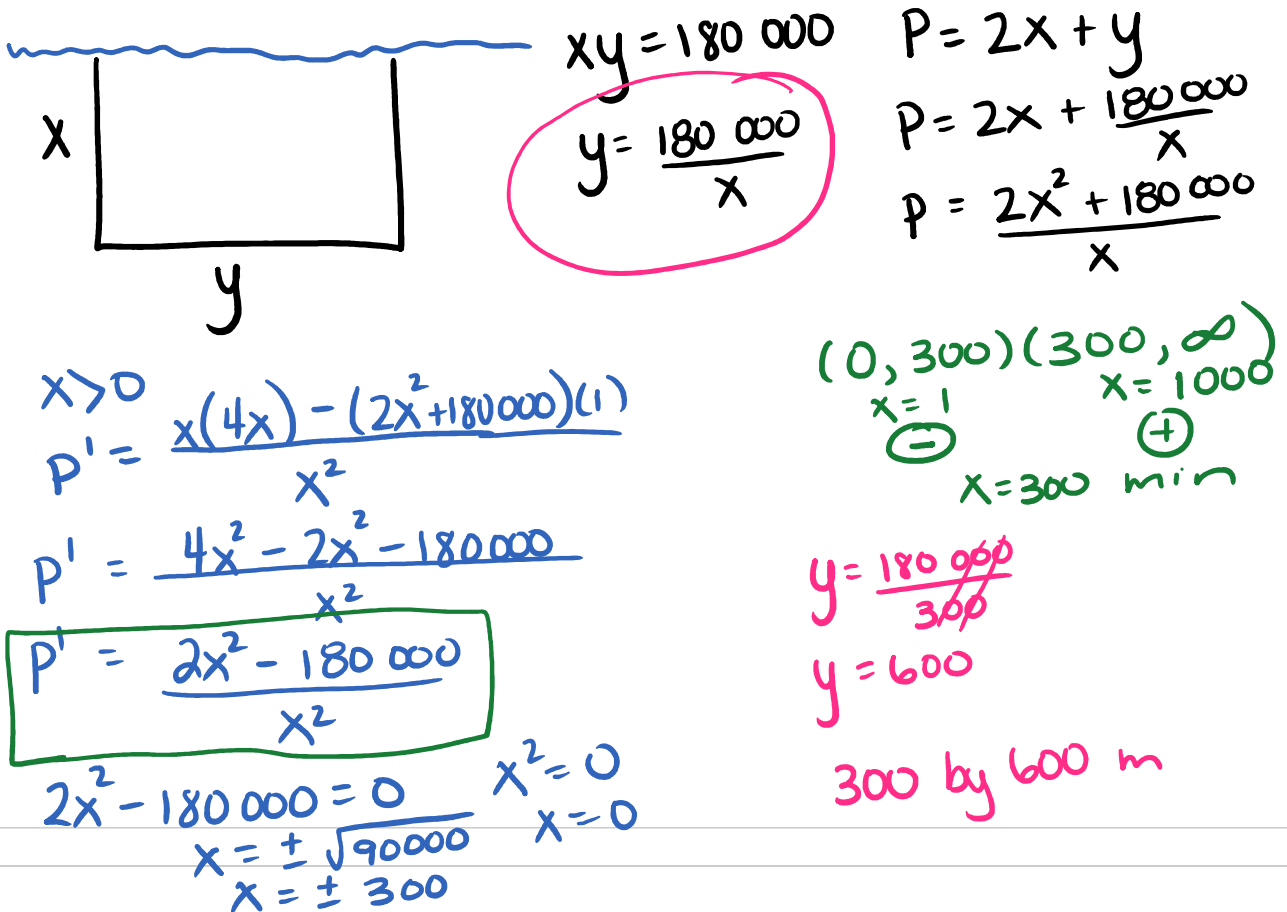 x
y
xy = 180 000
y = 180 000 / x
P = 2x + y
P = 2x + 180 000 / x
P = 2x² + 180 000 / x
x > 0
P' = x(4x) - (2x² + 180 000)(1) / x²
P' = 4x² - 2x² - 180 000 / x²
P' = 2x² - 180 000 / x²
2x² - 180 000 = 0
x = ± √90000
x = ± 300
x² = 0
x = 0
(0, 300) (300, ∞)
x = 1 x = 1000
- +
x = 300 min
y = 180 000 / 300
y = 600
300 by 600 m